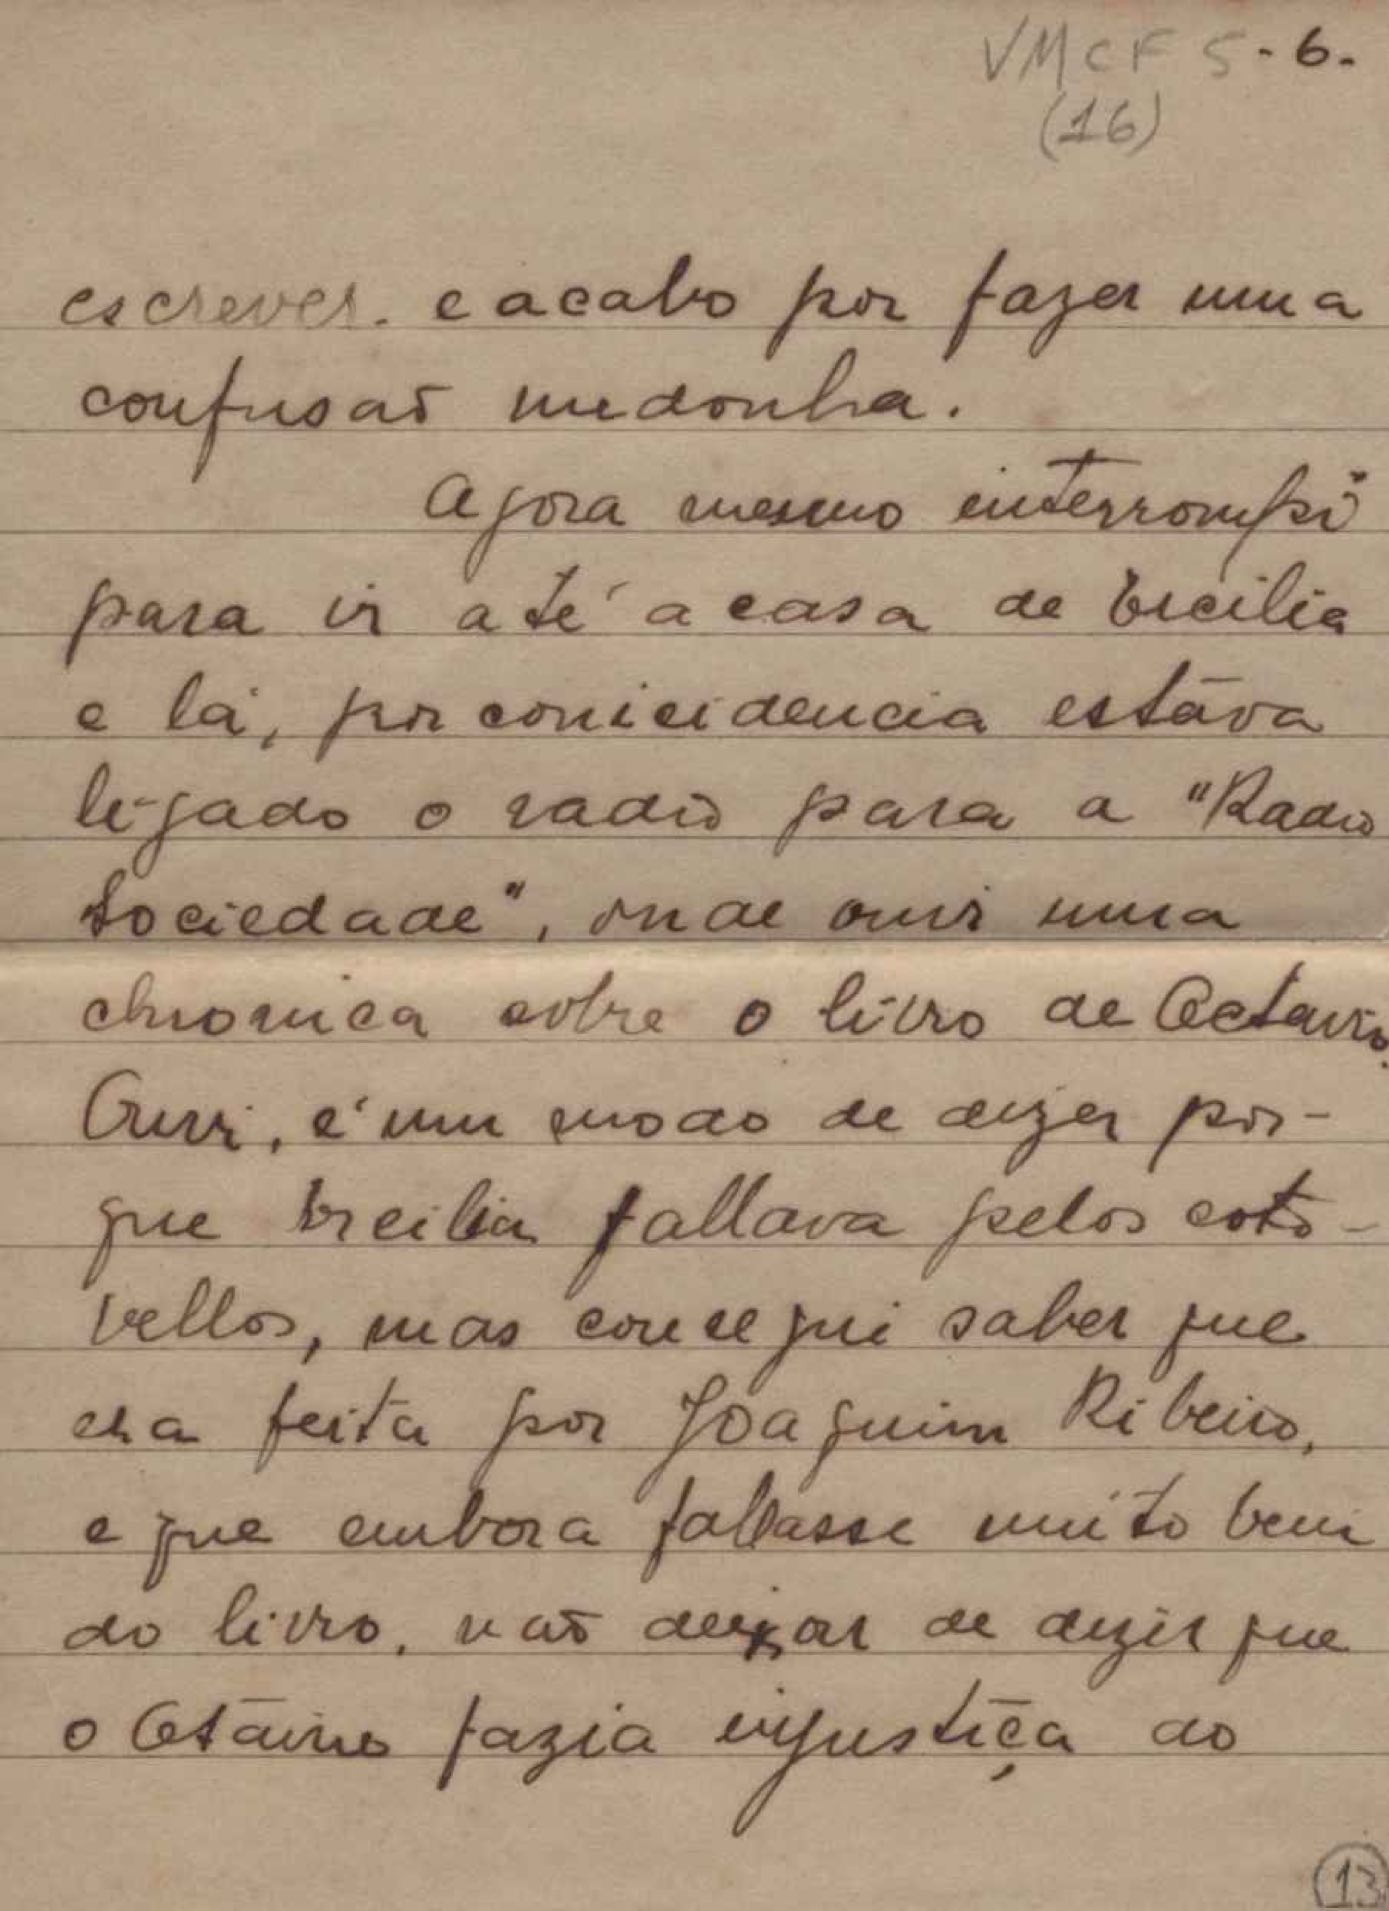 VMCF 5 - 6.
(16)
escrever. e acabo por fazer uma
confusaõ medonha.
Agora mesmo interrompi
para ir até a casa de Ercilia
e lá, por conicidencia estava
ligado o radio para a "Radio
Sociedade", onde ouvi uma
chronica sobre o livro de Octavio.
Ouvi, é um modo de dizer por-
que Ercilia fallava pelos coto-
vellos, mas consegui saber que
era feita por Joaquim Ribeiro,
e que embora fallasse muito bem
do livro, naõ deixar de dizer que
o Otavio fazia injustiça ao
13